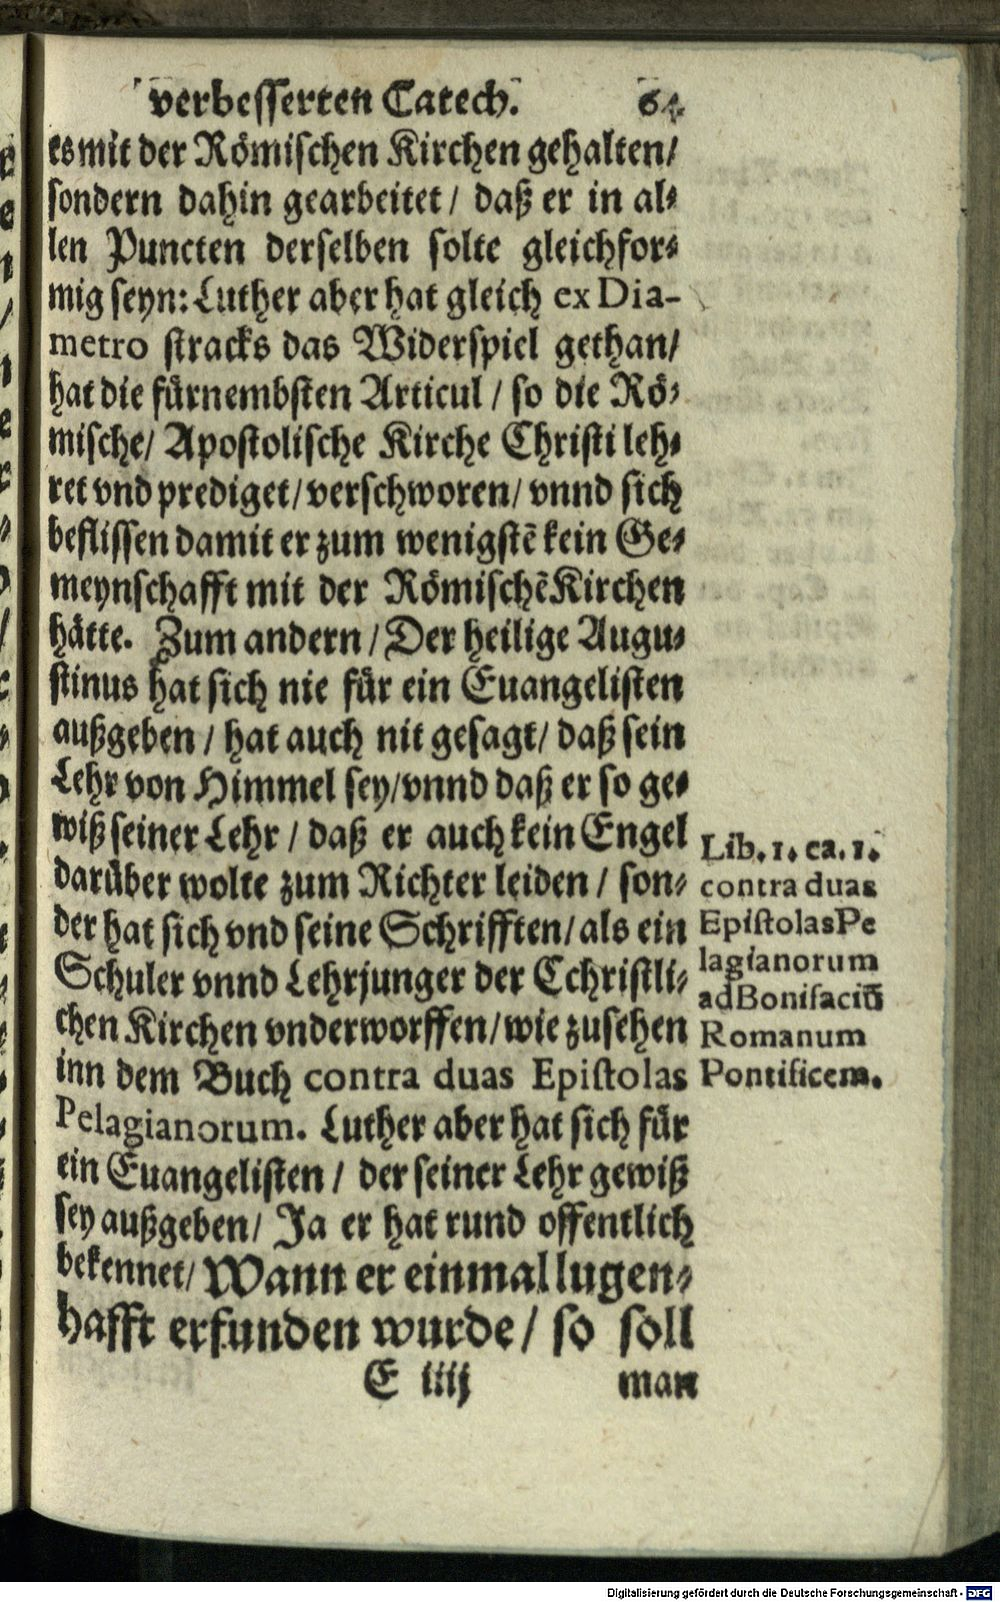 verbesserten Catech. 64.
es mit der Römischen Kirchen gehalten/
sondern dahin gearbeitet / daß er in al⸗
len Puncten derselben solte gleichfor⸗
mig seyn: Luther aber hat gleich ex Dia-
metro stracks das Widerspiel gethan/
hat die fürnembsten Articul / so die Rö⸗
mische/ Apostolische Kirche Christi leh⸗
ret vnd prediget/ verschworen/ vnnd sich
beflissen damit er zum wenigstẽ kein Ge⸗
meynschafft mit der Römischẽ Kirchen
hätte. Zum andern / Der heilige Augu⸗
stinus hat sich nie für ein Euangelisten
außgeben / hat auch nit gesagt/ daß sein
Lehr von Himmel sey/ vnnd daß er so ge⸗
wiß seiner Lehr / daß er auch kein Engel
darüber wolte zum Richter leiden / son⸗
der hat sich vnd seine Schrifften/ als ein
Schuler vnnd Lehrjunger der Cchristli⸗
chen Kirchen vnderworffen/ wie zusehen
inn dem Buch contra duas Epistolas
Pelagianorum. Luther aber hat sich für
ein Euangelisten / der seiner Lehr gewiß
sey außgeben/ Ja er hat rund offentlich
bekennet/ Wann er einmal lugen⸗
hafft erfunden wurde / so soll
E iiij man
Lib. 1. ca. 1.
contra duas
Epistolas Pe
lagianorum
ad Bonifaciũ
Romanum
Pontificem.
Digitalisierung gefördert durch die Deutsche Forschungsgemeinschaft - DFG